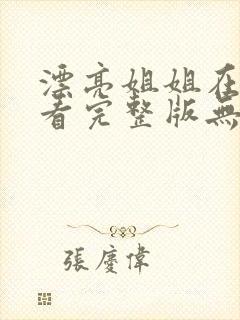 漂亮姐姐在
看完整版無
張慶偉